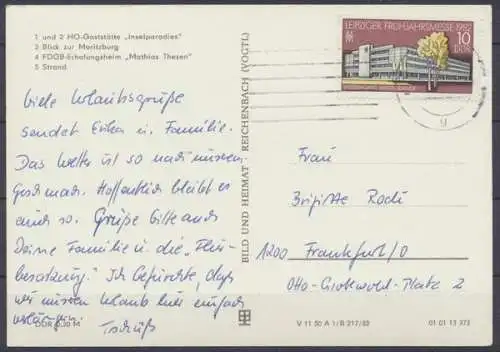 1 und 2 HO-Gaststätte „Inselparadies"
3 Blick zur Moritzburg
4 FDGB-Erholungsheim „Mathias Thesen"
5 Strand
Viele Urlaubsgrüße
sendet Erika u. Familie.
Das Wetter ist so nach unserem
Geschmack. Hoffentlich bleibt es
auch so. Grüße bitte auch
Deine Familie u. die „Flur-
besatzung". Ich befürchte, daß
wir unseren Urlaub hier einfach
verlängern.
Tschüß
DDR 0,30 M
BILD UND HEIMAT REICHENBACH (VOGTL)
LEIPZIGER FRÜHJAHRSMESSE 1982
10
DDR
Frau
Brigitte
1200 Frankfurt/O
Otto-Grotewohl-Platz 2
V 11 50 A 1/B 217/82
01 01 13 373